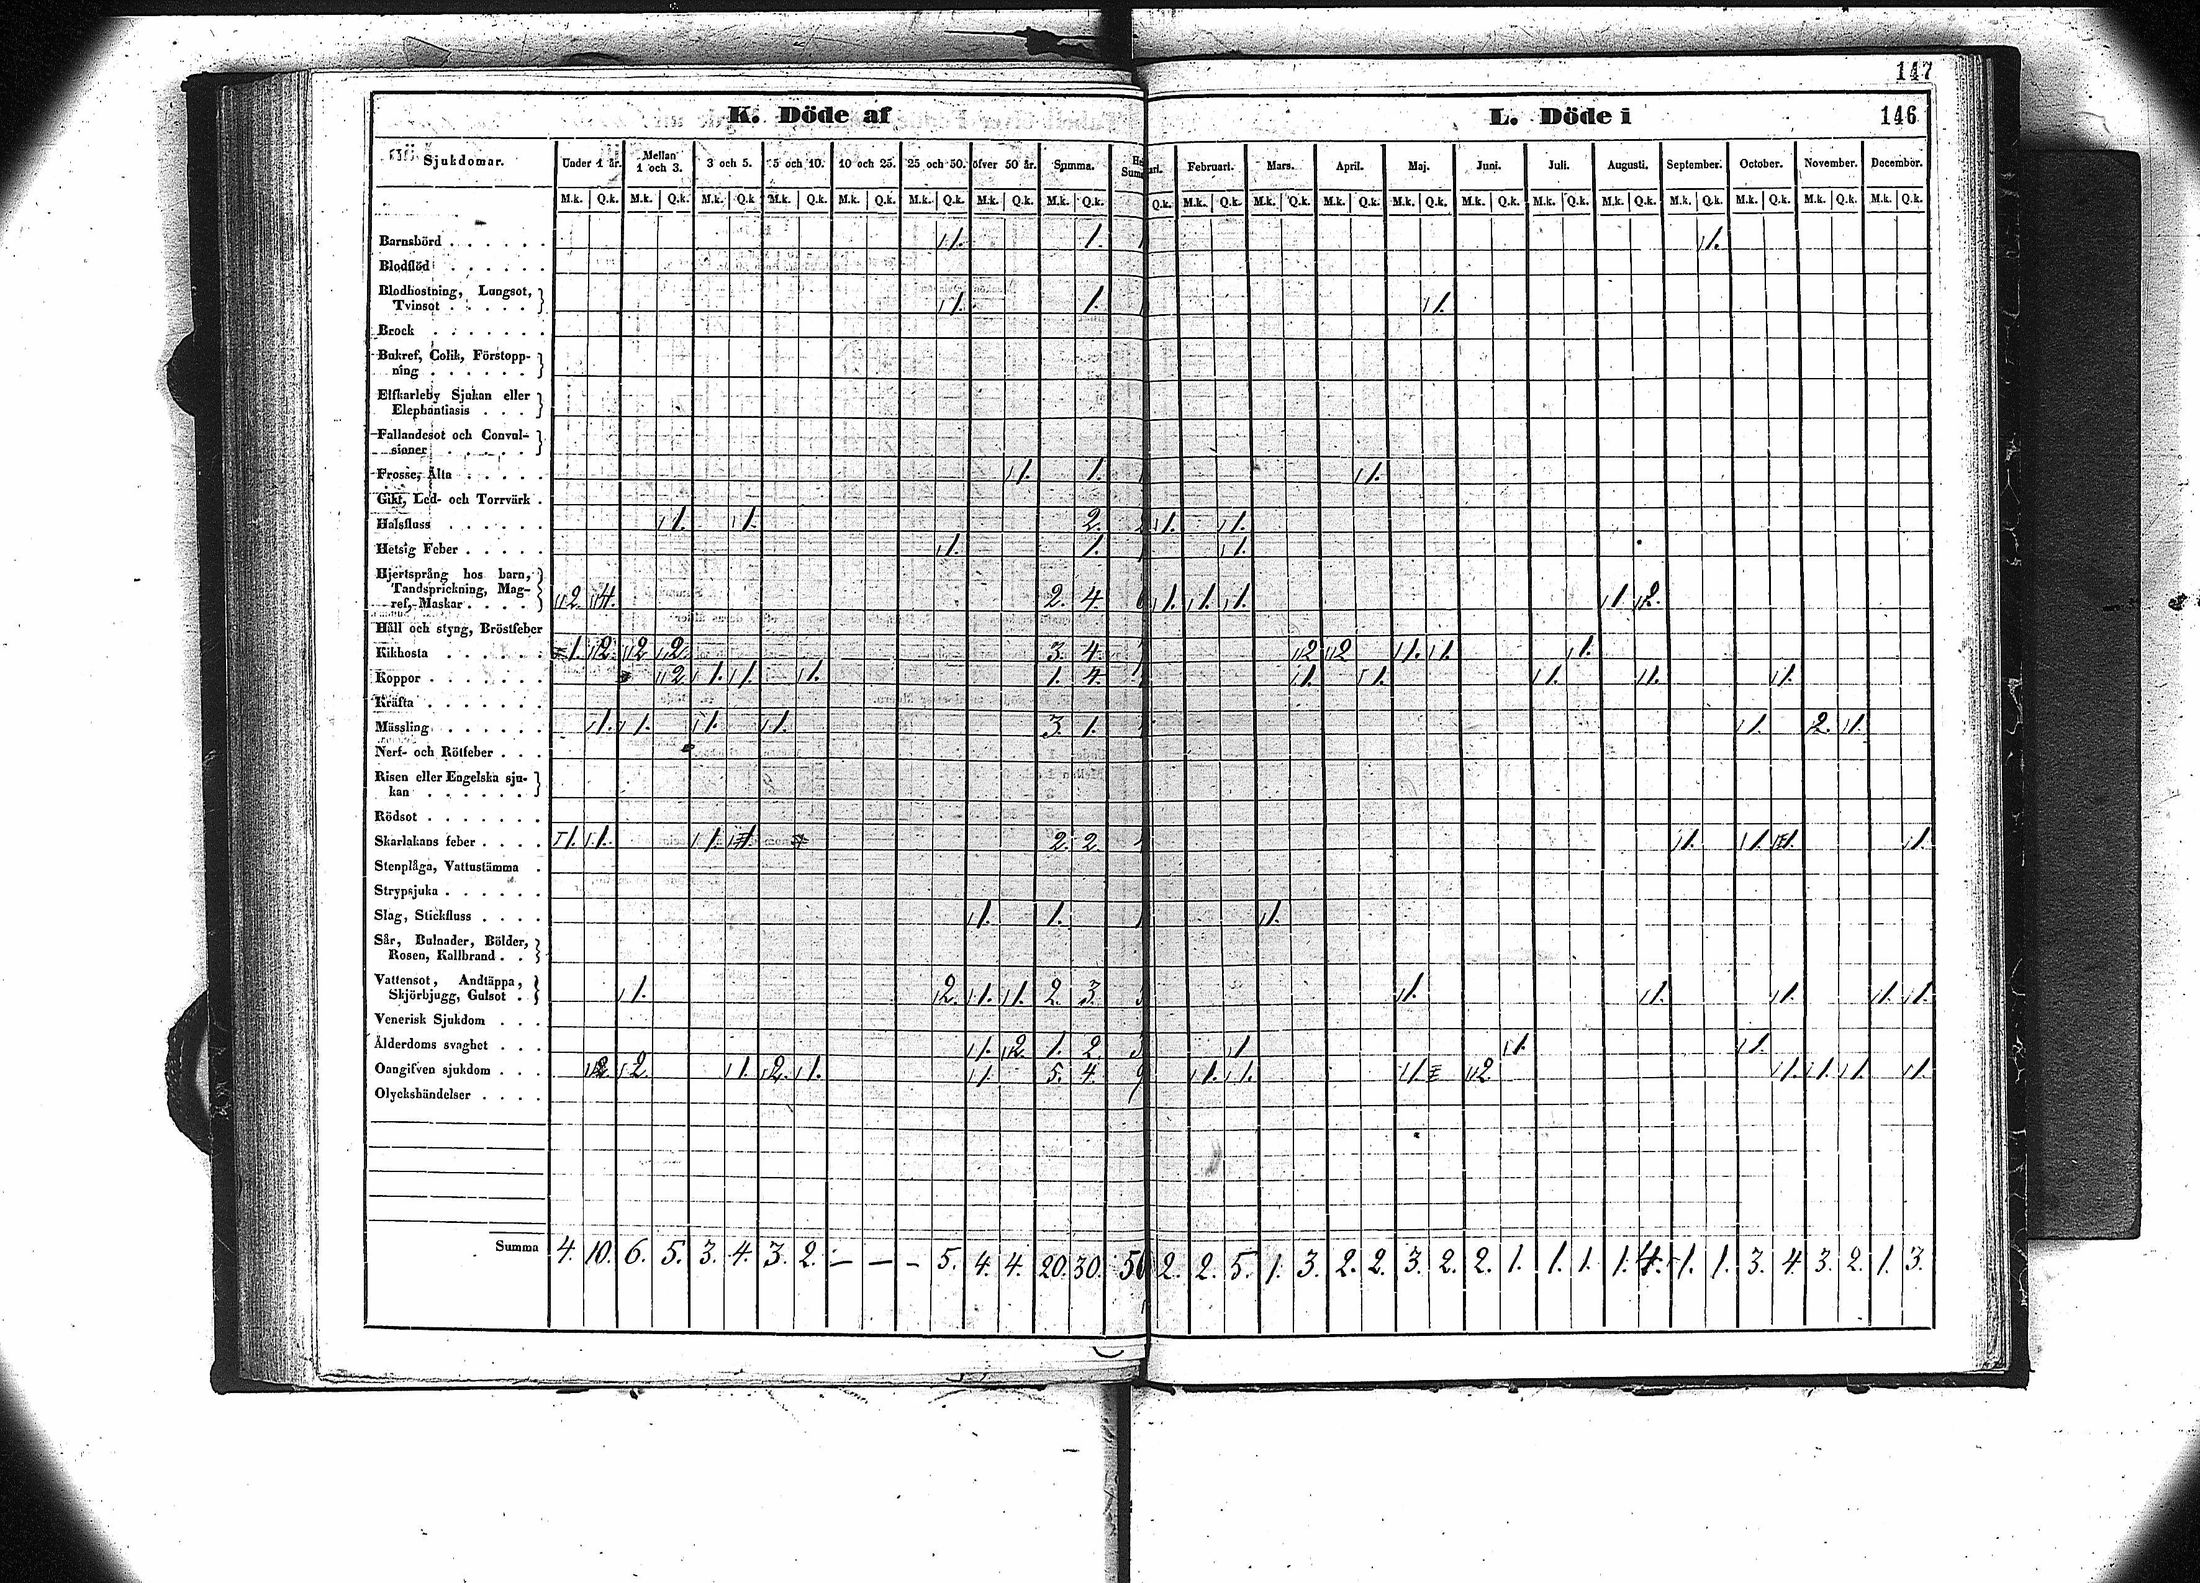 147
K. Döde af
L. Döde i
146
Sjukdomar. Under 1 år. Mellan 1 och 3. 3 och 5. 5 och 10. 10 och 25. 25 och 50. öfver 50 år. Summa. Februari. Mars. April. Maj. Juni. Juli. Augusti. September. October. November. December.
M.k. Q.k. M.k. Q.k. M.k. Q.k. M.k. Q.k. M.k. Q.k. M.k. Q.k. M.k. Q.k. M.k. Q.k. Q.k. M.k. Q.k. M.k. Q.k. M.k. Q.k. M.k. Q.k. M.k. Q.k. M.k. Q.k. M.k. Q.k. M.k. Q.k. M.k. Q.k. M.k. Q.k. M.k. Q.k.
Barnsbörd 1. 1. 1.
Blodflöd
Blodhostning, Lungsot,
Tvinsot 1. 1. 1.
Brock
Bukref, Colik, Förstopp-
ning
Elfkarleby Sjukan eller
Elephantiasis
Fallandesot och Convul-
sioner
Frosse, Älta 1. 1. 1.
Gikt, Led- och Torrvärk
Halsfluss 1. 1. 2. 2 1. 1.
Hetsig Feber 1. 1. 1.
Hjertsprång hos barn,
Tandsprickning, Mag-
ref, Maskar 2. 4. 2. 4. 6 1. 1. 1. 1. 2.
Håll och styng, Bröstfeber
Kikhosta 1. 2. 2 2. 3. 4. 2 2 1. 1. 1.
Koppor 2 1. 1. 1. 1. 4. 1. 1. 1. 1. 1.
Kräfta
Mässling 1. 1. 1. 1. 3. 1. 1. 2. 1.
Nerf- och Rötfeber
Risen eller Engelska sju-
kan
Rödsot
Skarlakans feber 1. 1. 1. 1. 2. 2. 1. 1. 1. 1.
Stenplåga, Vattustämma
Strypsjuka
Slag, Stickfluss 1. 1. 1.
Sår, Bulnader, Bölder,
Rosen, Kallbrand
Vattensot, Andtäppa,
Skjörbjugg, Gulsot 1. 2. 1. 1. 2. 3. 1. 1. 1. 1. 1.
Venerisk Sjukdom
Ålderdoms svaghet 1. 2. 1. 2. 3 1 1. 1.
Oangifven sjukdom 2. 2. 1. 2. 1. 1. 5. 4. 9 1. 1. 1. 2 1. 1. 1. 1.
Olyckshändelser
Summa 4. 10. 6. 5. 3. 4. 3. 2. — — — 5. 4. 4. 20. 30. 50 2. 2. 5. 1. 3. 2. 2. 3. 2. 2. 1. 1. 1. 1. 4. 1. 1. 3. 4. 3. 2. 1. 3.